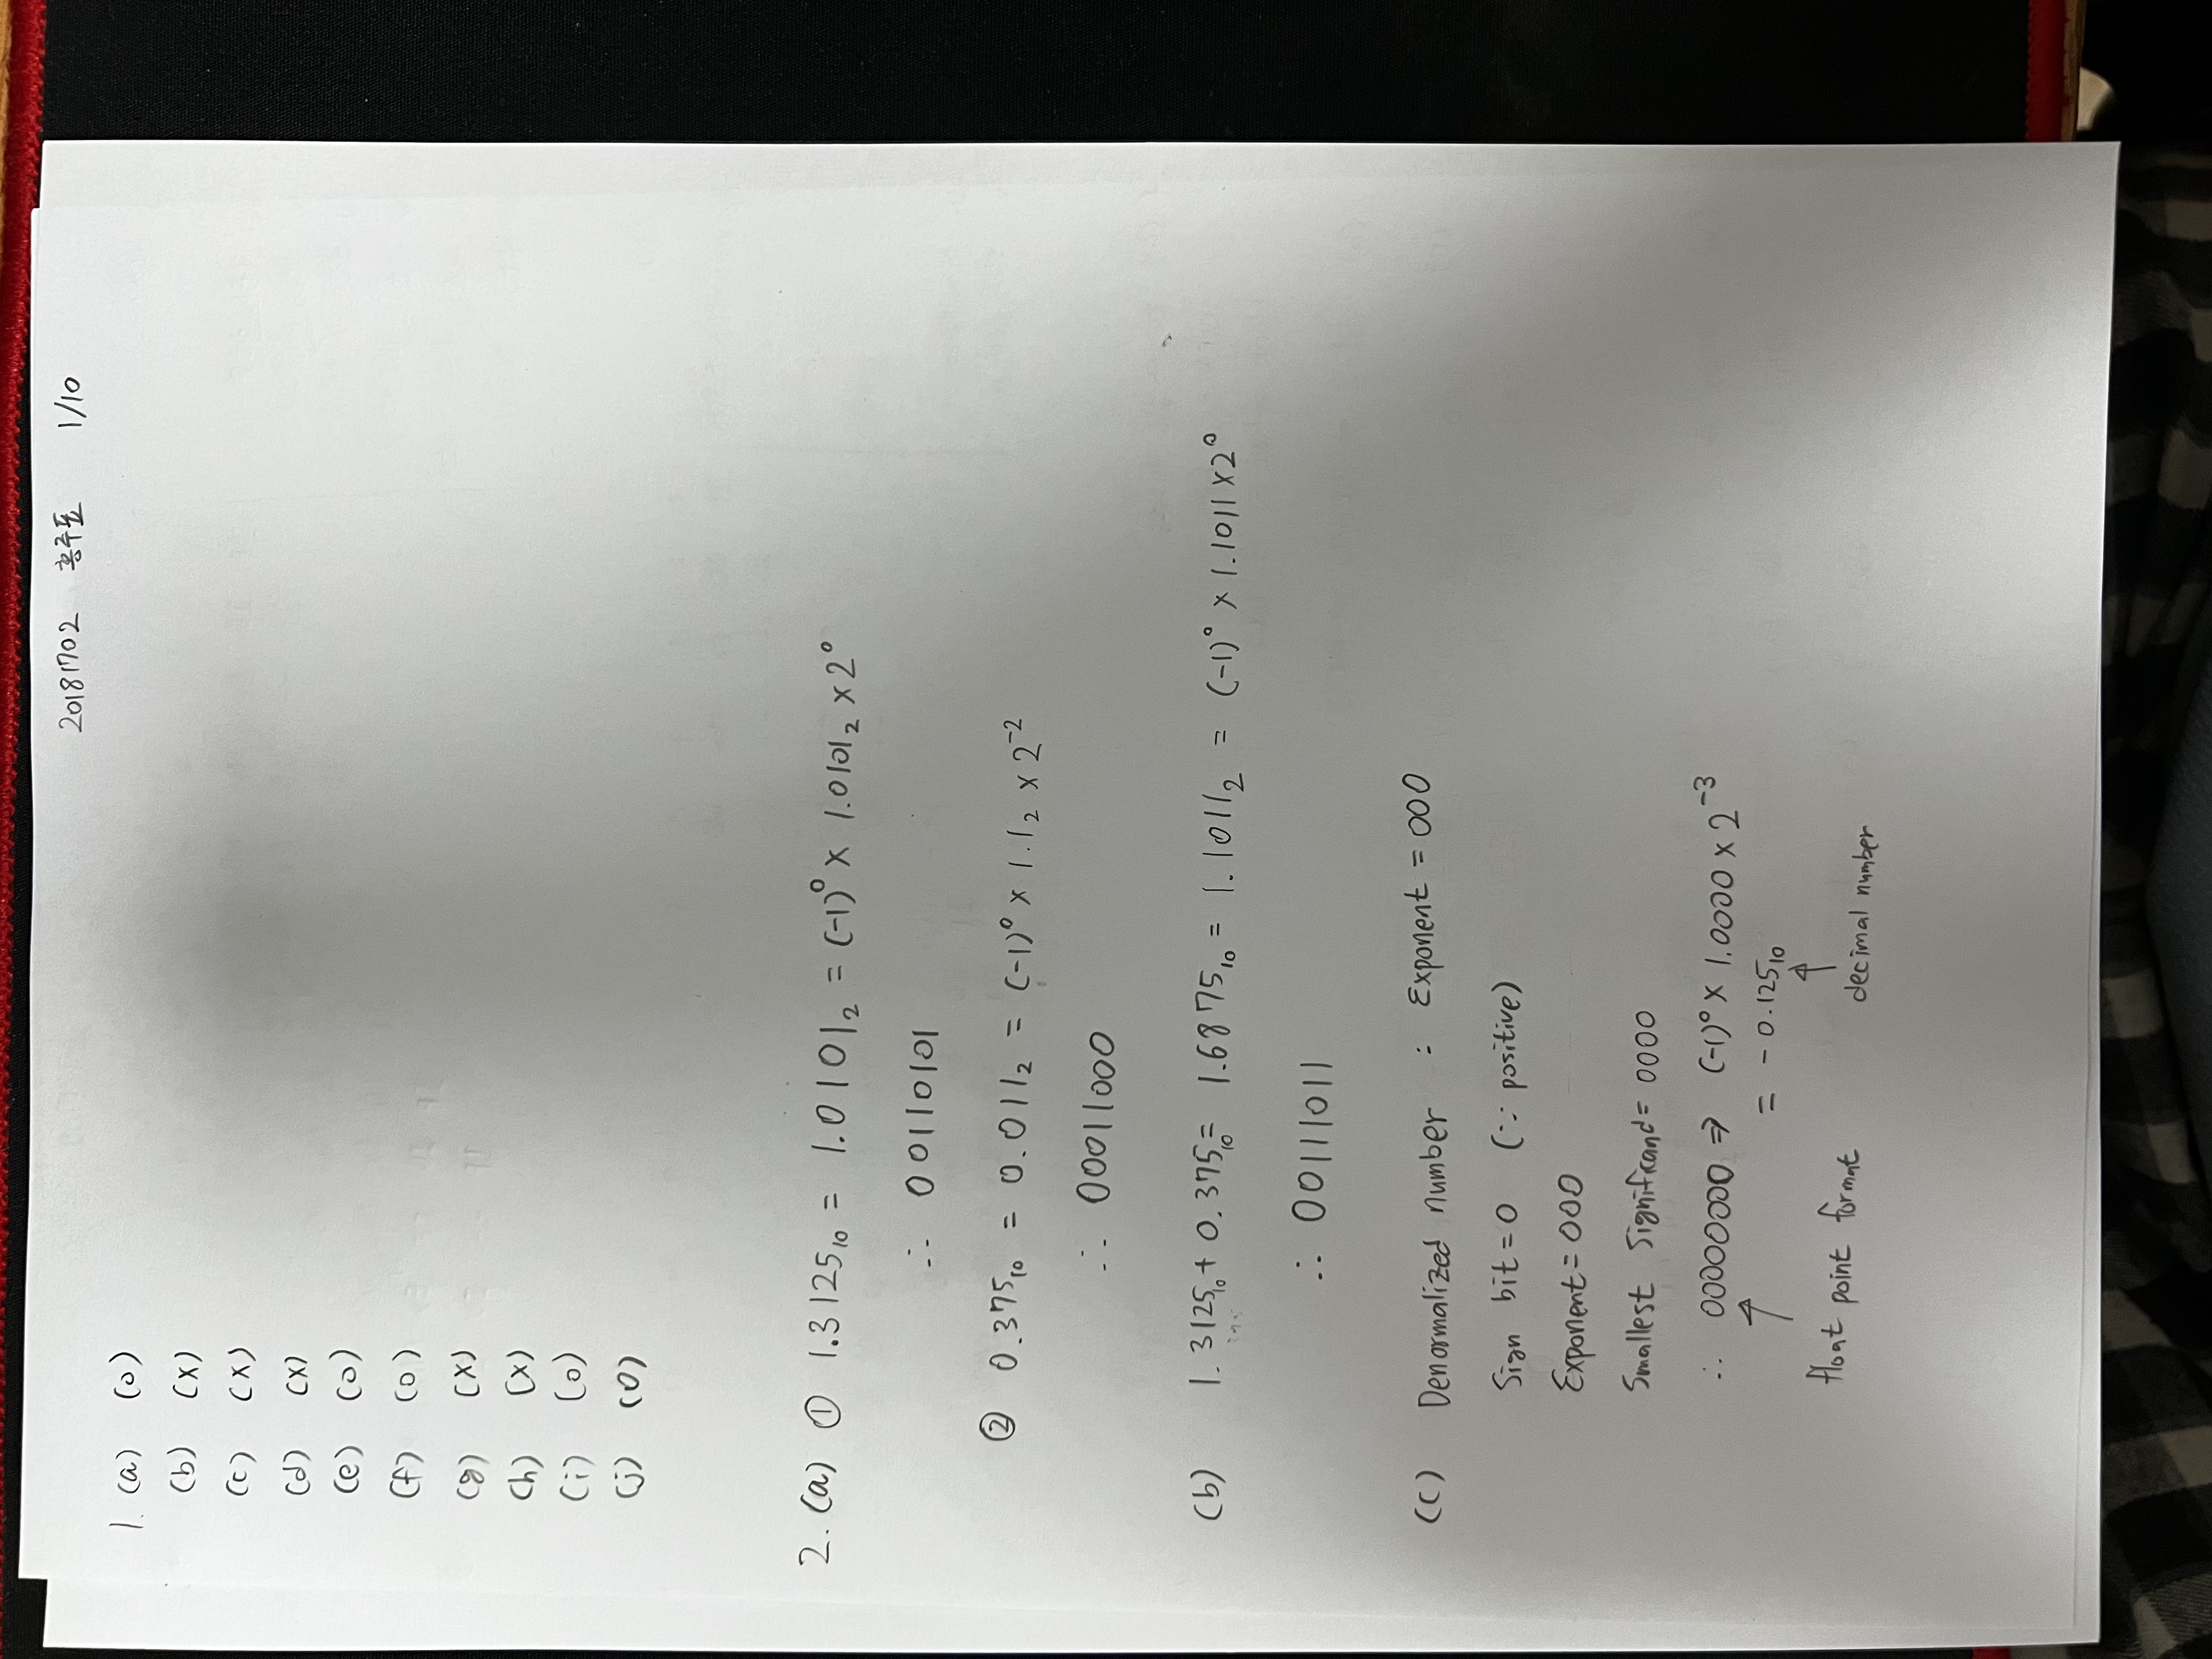 20181702 홍주표 1/10
1. (a) (o)
(b) (x)
(c) (x)
(d) (x)
(e) (o)
(f) (o)
(g) (x)
(h) (x)
(i) (o)
(j) (o)
2. (a) ① 1.3125₁₀ = 1.0101₂ = (-1)⁰ × 1.0101₂ × 2⁰
∴ 00110101
② 0.375₁₀ = 0.011₂ = (-1)⁰ × 1.1₂ × 2⁻²
∴ 00011000
(b) 1.3125₁₀ + 0.375₁₀ = 1.6875₁₀ = 1.1011₂ = (-1)⁰ × 1.1011 × 2⁰
∴ 00111011
(c) Denormalized number : Exponent = 000
Sign bit = 0 (∵ positive)
Exponent = 000
Smallest Significand = 0000
∴ 00000000 ⇒ (-1)⁰ × 1.0000 × 2⁻³
= -0.125₁₀
float point format
decimal number